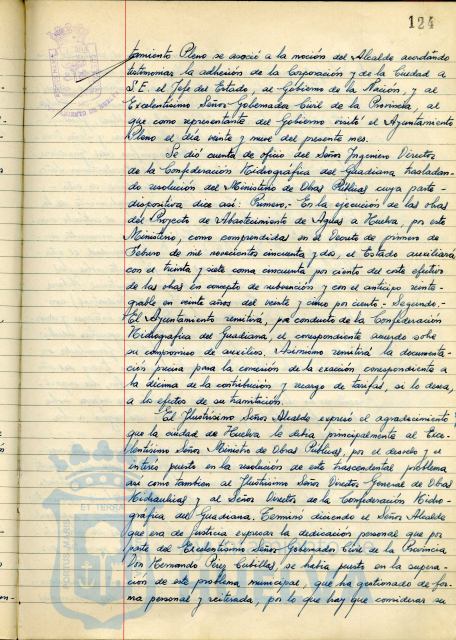 124
tamiento Pleno se asoció a la moción del Alcalde acordándo
testimoniar la adhesión de la Corporación y de la Ciudad a
S.E. el Jefe del Estado, al Gobierno de la Nación, y al
Excelentísimo Señor Gobernador Civil de la Provincia, al
que como representante del Gobierno visitó el Ayuntamiento
Pleno el día veinte y nueve del presente mes.
Se dió cuenta de oficio del Señor Ingeniero Director
de la Confederación Hidrográfica del Guadiana trasladan-
do resolución del Ministerio de Obras Públicas cuya parte
dispositiva dice así: Primero.- En la ejecución de las obras
del Proyecto de Abastecimiento de Aguas a Huelva, por este
Ministerio, como comprendidas en el Decreto de primero de
Febrero de mil novecientos cincuenta y dos, el Estado auxiliará
con el treinta y siete coma cincuenta por ciento del coste efectivo
de las obras en concepto de subvención y con el anticipo reinte-
grable en veinte años del veinte y cinco por ciento.- Segundo.-
El Ayuntamiento remitirá, por conducto de la Confederación
Hidrográfica del Guadiana, el correspondiente acuerdo sobre
su compromiso de auxilios. Asimismo remitirá la documenta-
ción precisa para la concesión de la exacción correspondiente a
la décima de la contribución y recargo de tarifas, si lo desea,
a los efectos de su tramitación.
El Ilustrísimo Señor Alcalde expresó el agradecimiento
que la ciudad de Huelva le debía principalmente al Exce-
lentísimo Señor Ministro de Obras Públicas, por el desvelo y el
interés puesto en la resolución de este trascendental problema
así como tambien al Ilustrísimo Señor Director General de Obras
Hidraulicas y al Señor Director de la Confederación Hidro-
gráfica del Guadiana. Terminó diciendo el Señor Alcalde
que era de justicia expresar la dedicación personal que por
parte del Excelentísimo Señor Gobernador Civil de la Provincia
Don Hernando Pérez Cubillas, se había puesto en la supera-
ción de este problema municipal, que ha gestionado de for-
ma personal y reiterada, por lo que hay que considerar su